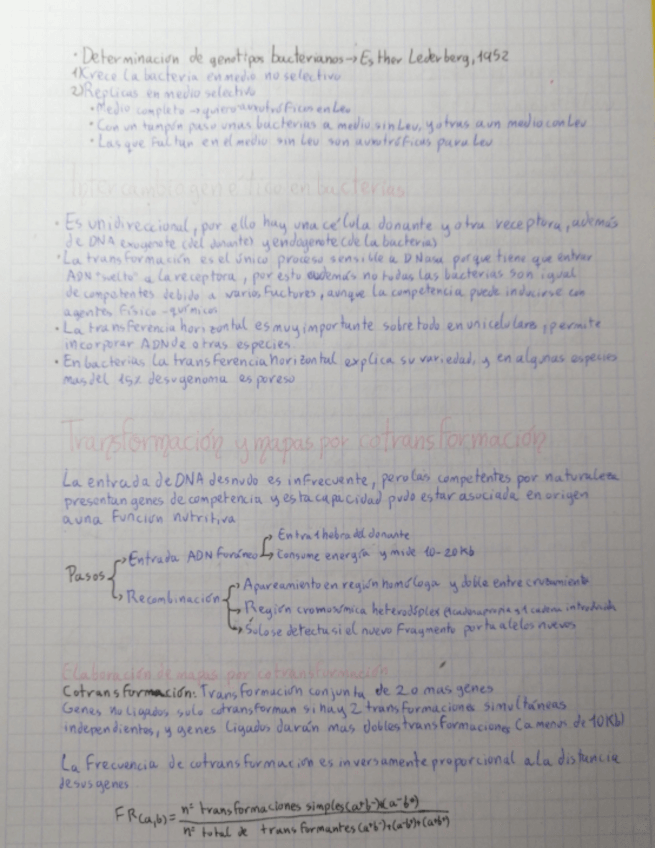 · Determinación de genotipos bacterianos → Esther Lederberg, 1952
1) Crece la bacteria en medio no selectivo
2) Replicas en medio selectivo
• Medio completo → quiero auxotróficas en Leu
• Con un tampón paso unas bacterias a medio sin Leu, y otras a un medio con Leu
• Las que faltan en el medio sin Leu son auxotróficas para Leu
Intercambio genético en bacterias
· Es unidireccional, por ello hay una célula donante y otra receptora, además
de DNA exogenote (del donante) y endogenote (de la bacteria)
· La transformación es el único proceso sensible a DNasa porque tiene que entrar
ADN "suelto" a la receptora, por esto además no todas las bacterias son igual
de competentes debido a varios factores, aunque la competencia puede inducirse con
agentes físico-químicos
· La transferencia horizontal es muy importante sobre todo en unicelulares, permite
incorporar ADN de otras especies
· En bacterias la transferencia horizontal explica su variedad, y en algunas especies
mas del 15% de su genoma es por eso
Transformación y mapas por cotransformación
La entrada de DNA desnudo es infrecuente, pero las competentes por naturaleza
presentan genes de competencia y esta capacidad pudo estar asociada en origen
a una función nutritiva
Pasos
Entrada ADN foráneo
Entra 1 hebra del donante
Consume energía y mide 10-20 Kb
Recombinación
Apareamiento en región homóloga y doble entrecruzamiento
Región cromosómica heterodúplex 1 cadena propia y 1 cadena introducida
Solo se detecta si el nuevo fragmento porta alelos nuevos
Elaboración de mapas por cotransformación
Cotransformación: Transformación conjunta de 2 o mas genes
Genes no ligados solo cotransforman si hay 2 transformaciones simultáneas
independientes, y genes ligados darán mas dobles transformaciones (a menos de 10 Kb)
La frecuencia de cotransformación es inversamente proporcional a la distancia
de sus genes
FR(a,b) = nº transformaciones simples (a⁺b⁻)+(a⁻b⁺)
nº total de transformantes (a⁺b⁻)+(a⁻b⁺)+(a⁺b⁺)